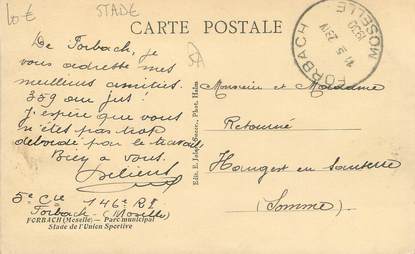 10€ STADE
CARTE POSTALE
De Forbach, je
vous adresse mes
meilleurs amitiés.
359 au jus !
J'espère que vous
n'êtes pas trop
débordé par le travail
Bien à vous.
5e Cie 146e RI
Forbach - (Moselle)
FORBACH (Moselle) — Parc municipal
Stade de l'Union Sportive
Phot. Helm
FORBACH
MOSELLE
1930
Monsieur et Madame
Retourné
Hangest en Santerre
(Somme)